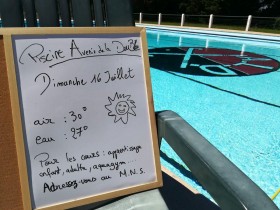 Piscine Avenir de la Doubie
Dimanche 16 Juillet
air : 30°
eau : 27°
Pour les cours : apprentissage
enfant, adulte, aquagym...
Adressez-vous au M.N.S.